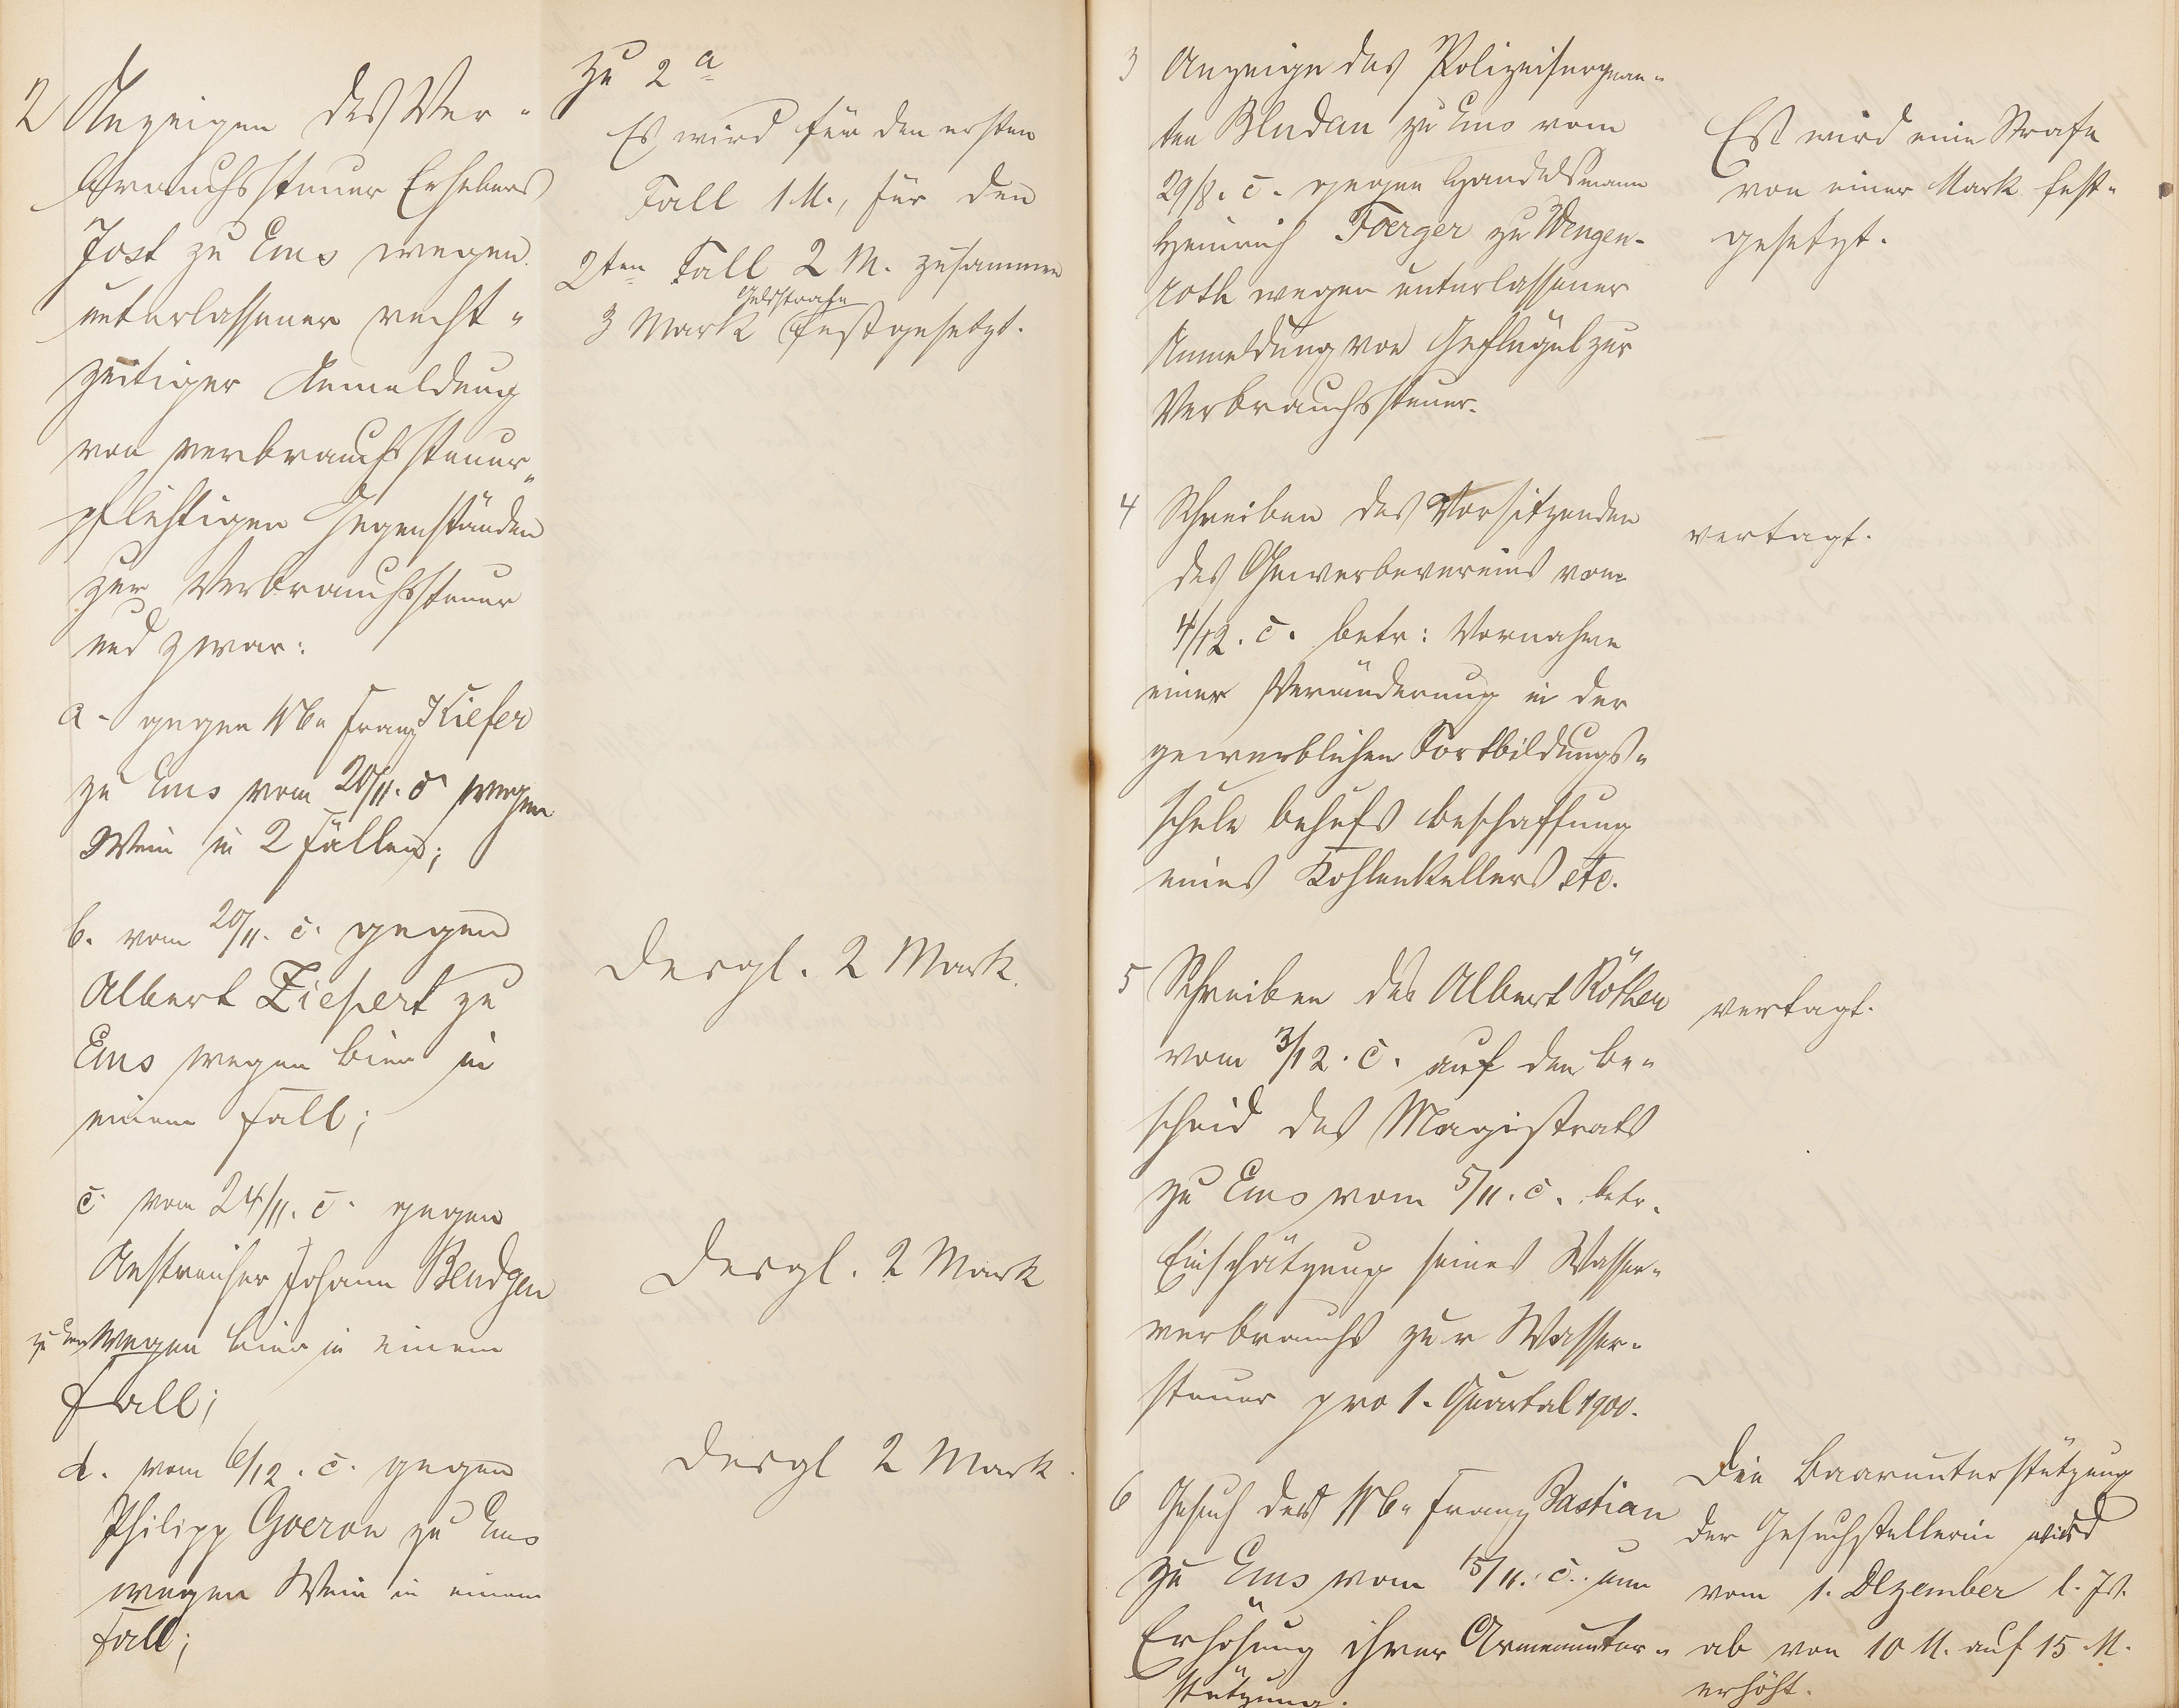 2 Anzeigen des Ver-
brauchssteuer Erhebers
Jost zu Ems wegen
unterlassener recht-
zeitiger Anmeldung
von verbrauchssteuer-
pflichtigen Gegenständen
zur Verbrauchssteuer
und zwar:
a - gegen Wb. Franz Kiefer
zu Ems vom 20/11. c wegen
Wein in 2 Fällen;
b. vom 20/11. c. gegen
Albert Ziepert zu
Ems wegen Bier in
einem Fall;
c vom 24/11. c. gegen
Anstreicher Johann Bendgen
zu Ems wegen Bier in einem
Fall;
d. vom 6/12. c. gegen
Philipp Goeron zu Ems
wegen Wein in einem
Fall;
zu 2 a
Es wird für den ersten
Fall 1 M., für den
2ten Fall 2 M. zusammen
Geldstrafe
3 Mark festgesetzt.
dergl. 2 Mark.
dergl. 2 Mark
dergl 2 Mark.
3 Anzeige des Polizeisergean-
ten Bludau zu Ems vom
29/8. c. gegen Handelsmann
Heinrich Foerger zu Wengen-
roth wegen unterlassener
Anmeldung von Geflügel zur
Verbrauchssteuer.
Es wird eine Strafe
von einer Mark fest-
gesetzt.
4 Schreiben des Vorsitzenden
des Gewerbevereins vom
4/12. c. betr: Vornahme
einer Veränderung in der
gewerblichen Fortbildungs-
schule behufs Beschaffung
eines Kohlenkellers etc.
vertagt.
5 Schreiben des Albert Röther
vom 3/12. c. auf den Be-
scheid des Magistrats
zu Ems vom 5/11. c. betr.
Einschätzung seines Wasser-
verbrauchs zur Wasser-
steuer pro 1. Quartal 1900.
vertagt.
6 Gesuch der Wb. Franz Bastian
zu Ems vom 15/11. c. um
Erhöhung ihrer Armenunter-
stützung.
Die Baarunterstützung
der Gesuchstellerin wird
vom 1. Dezember l. Js.
ab von 10 M. auf 15 M.
erhöht.